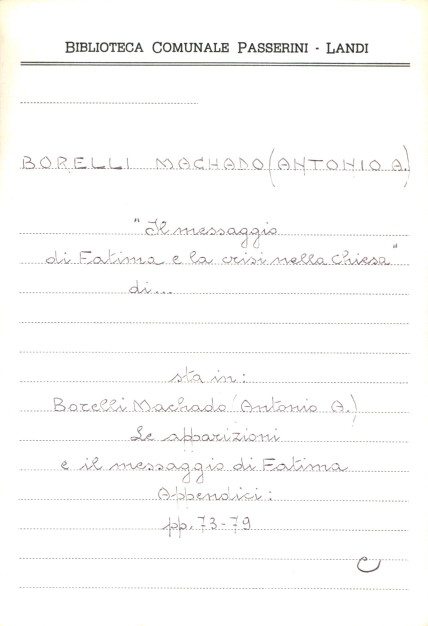 BIBLIOTECA COMUNALE PASSERINI - LANDI
BORELLI MACHADO (ANTONIO A.)
"Il messaggio
di Fatima e la crisi nella Chiesa"
di...
sta in:
Borelli Machado (Antonio A.)
Le apparizioni
e il messaggio di Fatima
Appendici:
pp. 73-79
C